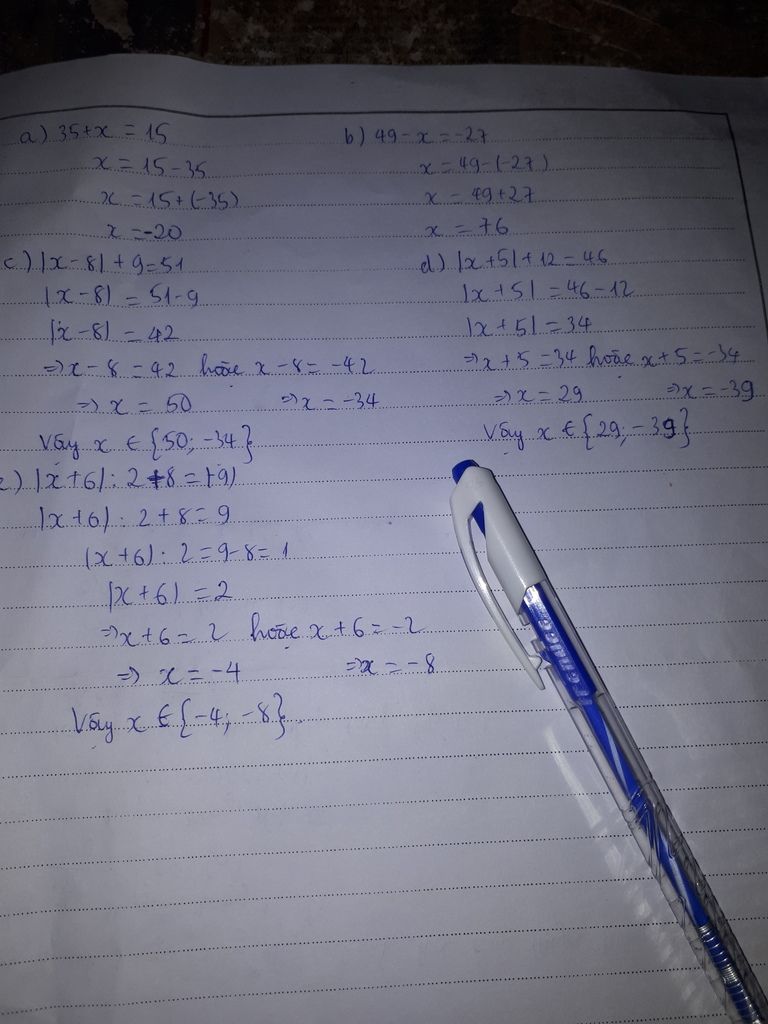 a) 35+x = 15
x = 15-35
x = 15+(-35)
x = -20
b) 49-x = -27
x = 49-(-27)
x = 49+27
x = 76
c) |x-8| + 9 = 51
|x-8| = 51-9
|x-8| = 42
=> x-8 = 42 hoặc x-8 = -42
=> x = 50 => x = -34
Vậy x ∈ {50; -34}
d) |x+5| + 12 = 46
|x+5| = 46-12
|x+5| = 34
=> x+5 = 34 hoặc x+5 = -34
=> x = 29 => x = -39
Vậy x ∈ {29; -39}
e) |x+6| : 2+8 = |-9|
|x+6| : 2+8 = 9
|x+6| : 2 = 9-8 = 1
|x+6| = 2
=> x+6 = 2 hoặc x+6 = -2
=> x = -4 => x = -8
Vậy x ∈ {-4; -8}.